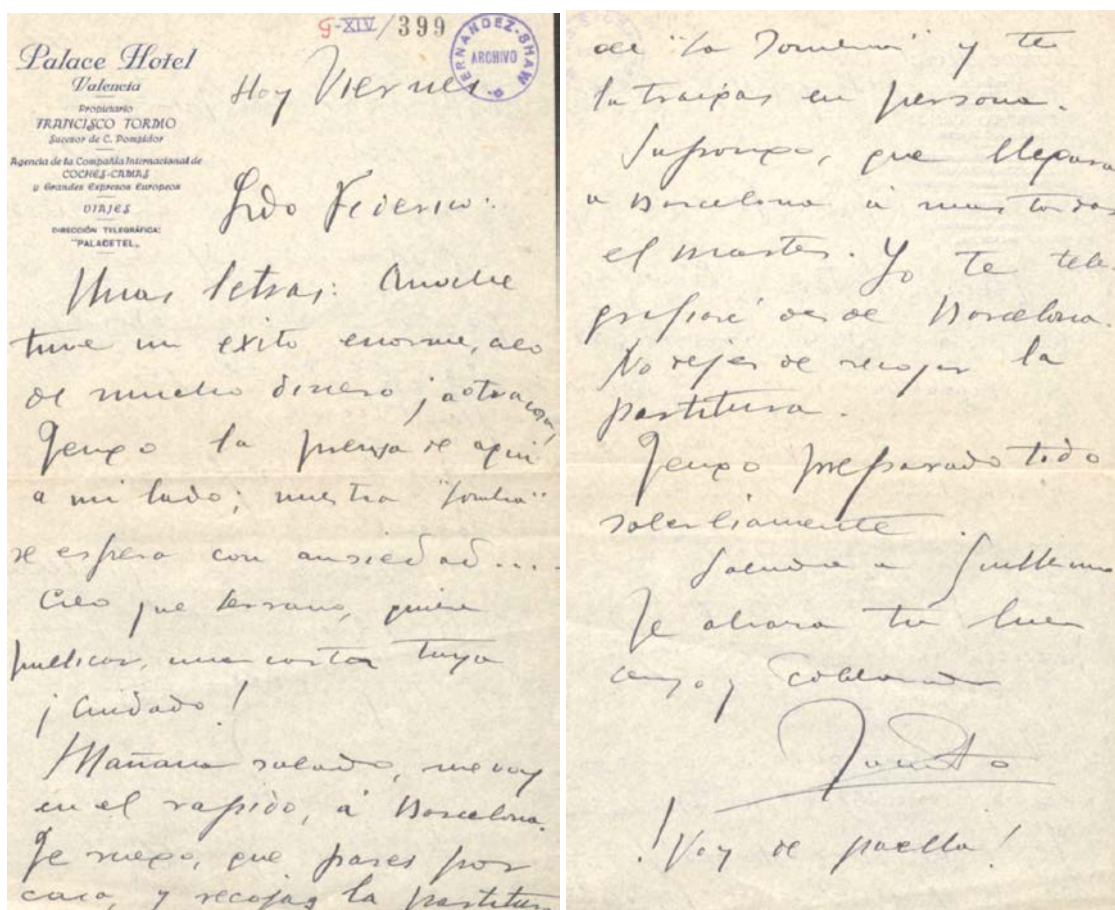 9-XIV/399
FERNANDEZ-SHAW
ARCHIVO
Palace Hotel
Valencia
Propietario
FRANCISCO TORMO
Sucesor de C. Pompidor
Agencia de la Compañía Internacional de
COCHES-CAMAS
y Grandes Expresos Europeos
VIAJES
DIRECCIÓN TELEGRÁFICA:
"PALACETEL"
Hoy Viernes
Qrdo Federico:
Unas letras: Anoche
tuve un exito enorme,
de mucho dinero ¡otra cosa!
Tengo la prensa de aqui
a mi lado; nuestra
se espera con ansiedad....
Creo que Serrano, quiere
publicar, una carta tuya
¡Cuidado!
Mañana sabado, me voy
en el rapido, á Barcelona.
Te ruego, que pases por
casa, y recojas la partitura
de "La " y te
la traigas en persona.
Supongo, que llegara
a Barcelona á mas tardar
el martes. Yo te tele-
grafiaré desde Barcelona.
No dejes de recojer la
partitura.
Tengo preparado todo
soberbiamente.
Saluda a Guillermo
Te abraza tu buen
amigo y
¡Voy de paella!